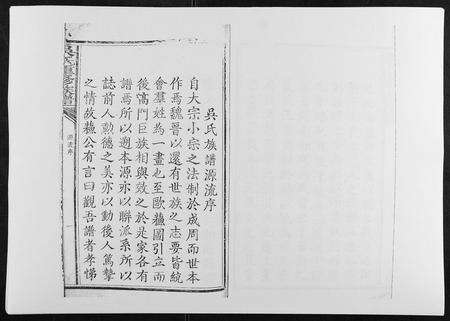 吳氏族譜源流序
自大宗小宗之法制於成周而世本
作焉魏晉以還有世族之志要皆統
會羣姓為一書也至歐蘇圖引立而
後高門巨族相與效之於是家各有
譜焉所以遡本源亦以聯派系所以
誌前人勳德之美亦以動後人篤摯
之情故蘇公有言曰觀吾譜者孝悌
源流序